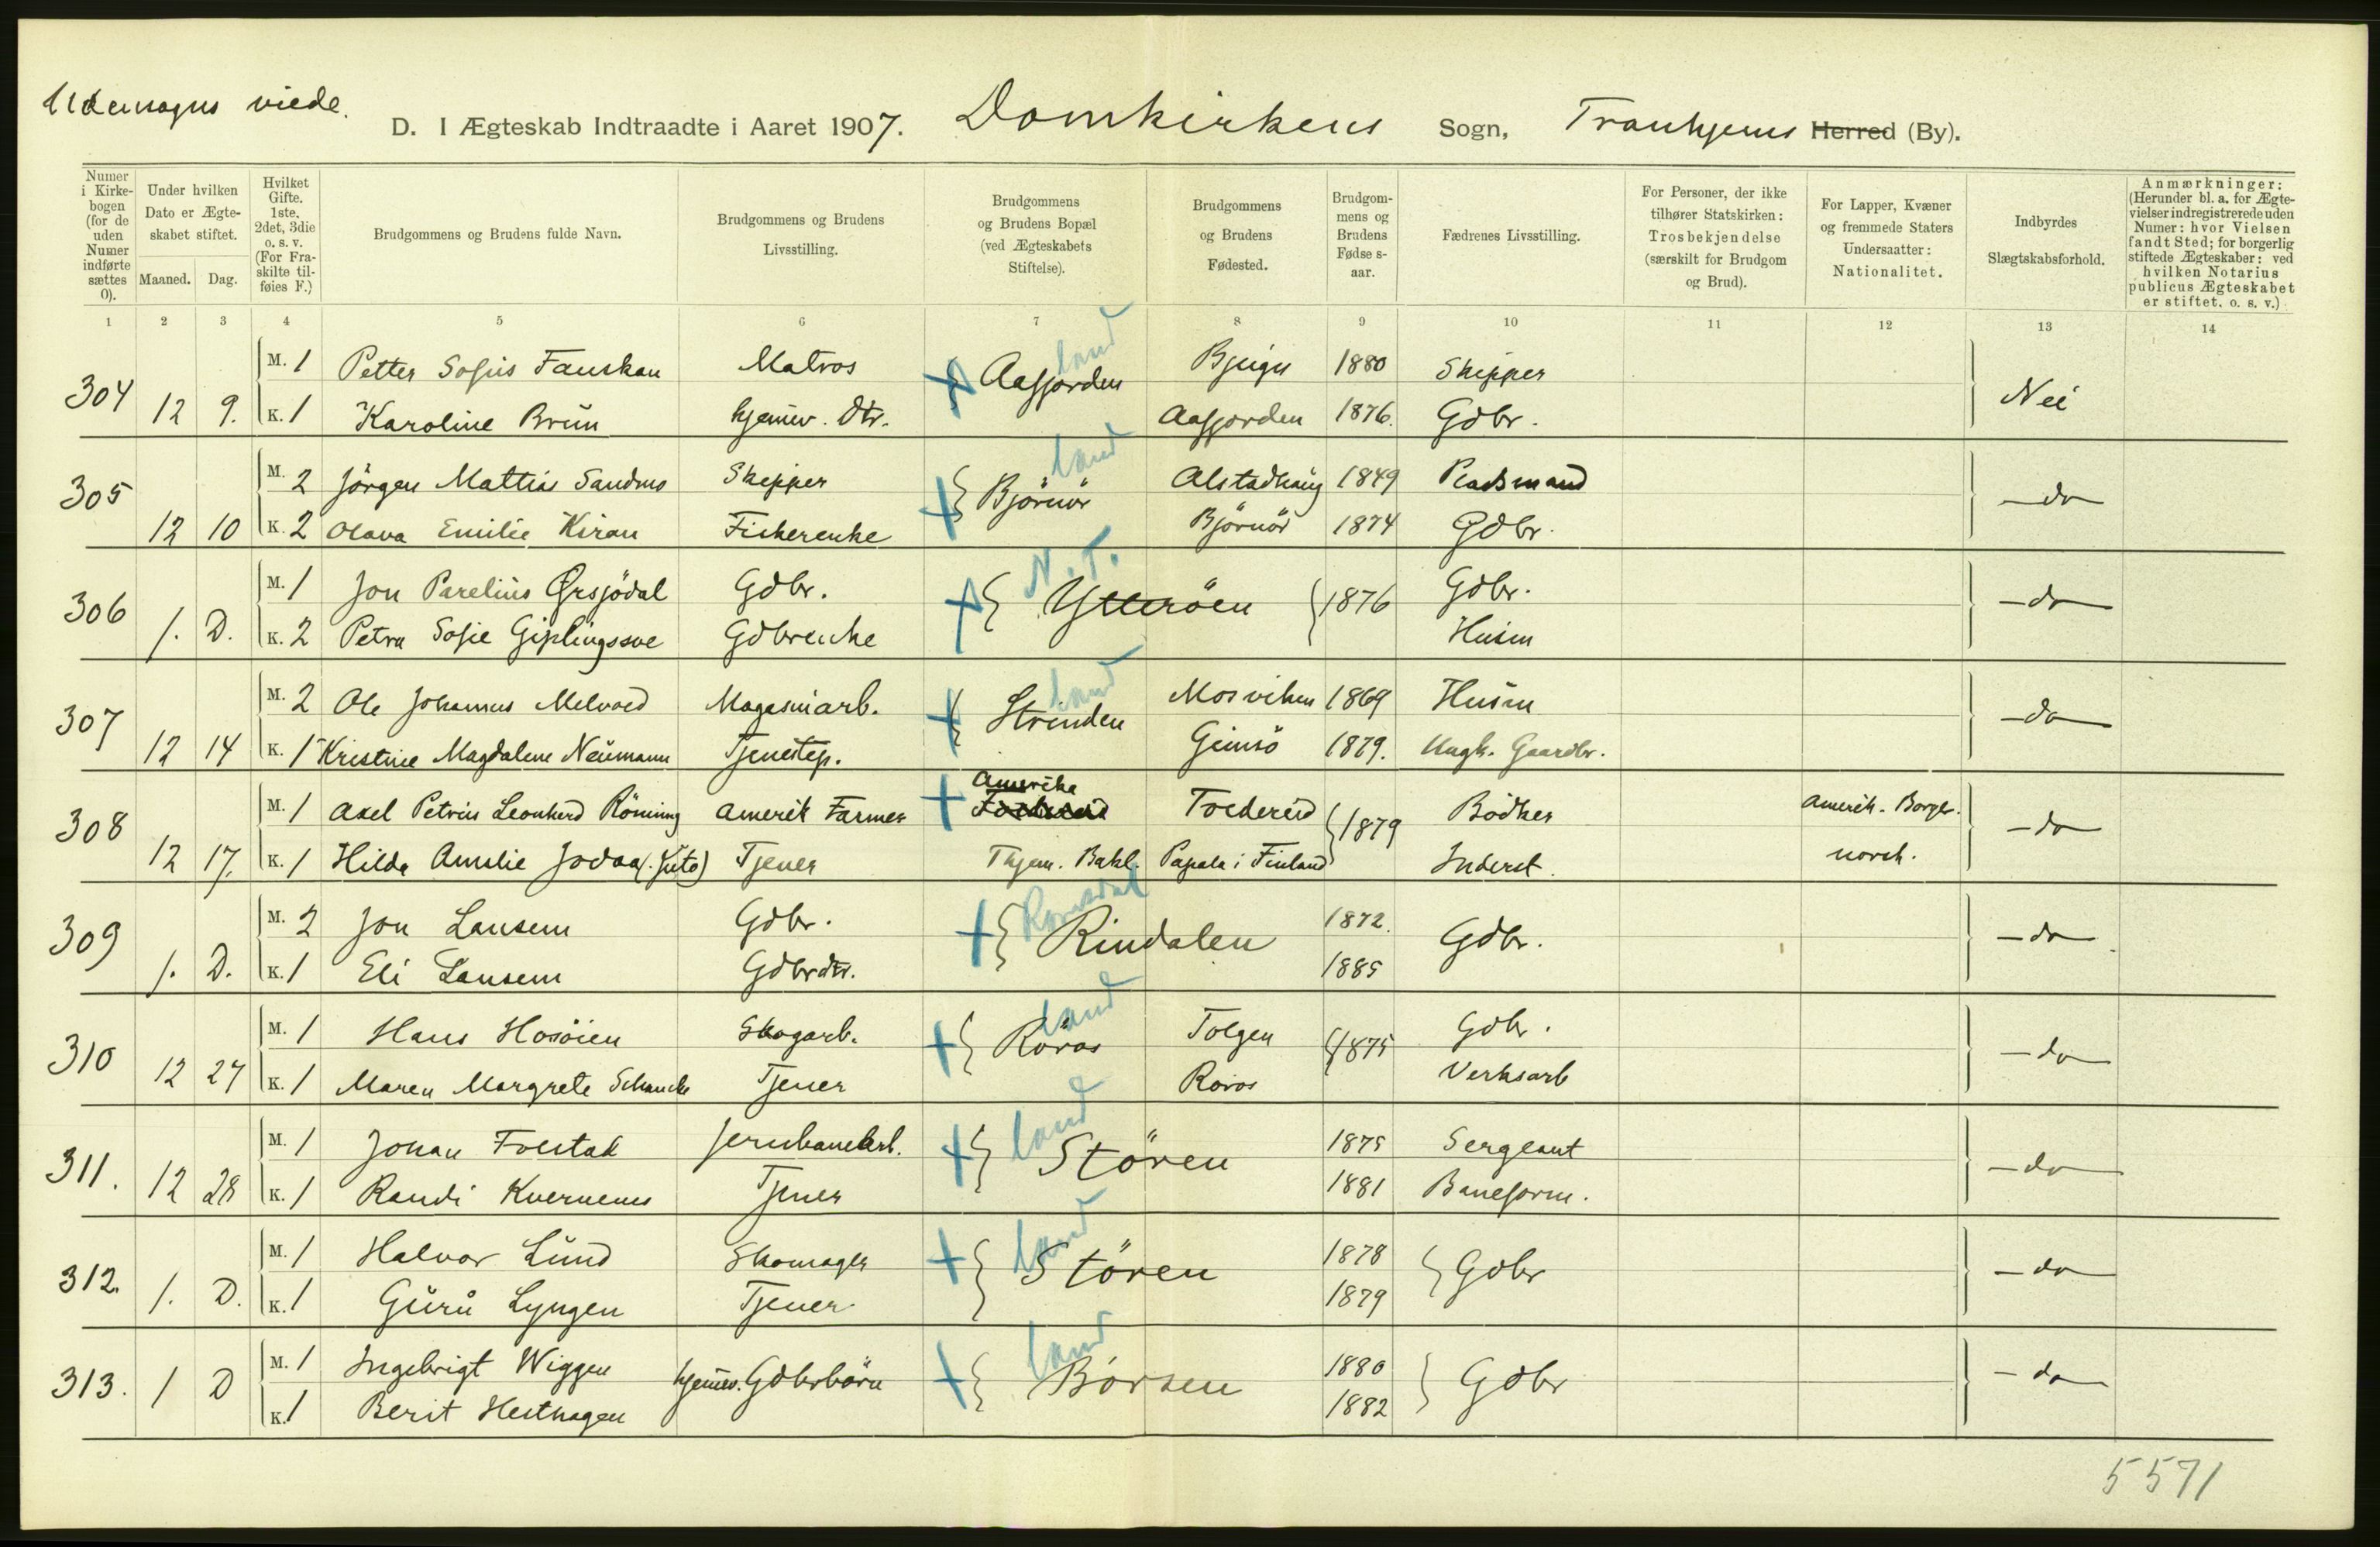 viede.
D. I Ægteskab Indtraadte i Aaret 1907. Domkirkens Sogn, Tronhjems Herred (By).
Numer i Kirkebogen (for de uden Numer indførte sættes 0).
Under hvilken Dato er Ægteskabet stiftet.
Maaned. Dag.
Hvilket Gifte. 1ste, 2det, 3die o. s. v. (For Fraskilte tilføies F.)
Brudgommens og Brudens fulde Navn.
Brudgommens og Brudens Livsstilling.
Brudgommens og Brudens Bopæl (ved Ægteskabets Stiftelse).
Brudgommens og Brudens Fødested.
Brudgommens og Brudens Fødselsaar.
Fædrenes Livsstilling.
For Personer, der ikke tilhører Statskirken: Trosbekjendelse (særskilt for Brudgom og Brud).
For Lapper, Kvæner og fremmede Staters Undersaatter: Nationalitet.
Indbyrdes Slægtskabsforhold.
Anmærkninger: (Herunder bl. a. for Ægtevielser indregistrerede uden Numer: hvor Vielsen fandt Sted; for borgerlig stiftede Ægteskaber: ved hvilken Notarius publicus Ægteskabet er stiftet. o. s. v.)
1 2 3 4 5 6 7 8 9 10 11 12 13 14
304 12 9. M. 1 Petter Sofus Fauskan Matros Aafjorden land Bjugn 1880 Skipper Nei
K. 1 Karoline Brun hjemv. Dtr. Aafjorden 1876. Gdbr.
305 12 10 M. 2 Jörgen Mattias Sandmo Skipper Björnör land Alstadhaug 1849 Pladsmand do
K. 2 Olava Emilie Kiran Fiskerenke Björnör 1874 Gdbr.
306 1. D. M. 1 Jon Parelius Ørsjödal Gdbr. Ytterøen N.T. 1876 Gdbr. do
K. 2 Petra Sofie Gdbrenke Husm
307 12 14 M. 2 Ole Johannes Melvold Magasinarb. Strinden land Mosviken 1869 Husm do
K. 1 Kristine Magdalene Neumann Tjenestep. Gimsö 1879. Ungk. Gaardbr.
308 12 17. M. 1 Axel Petrius Leonherd Röning Amerik Farmer Amerika Foldereid 1879 Bödker Amerik. Borger. do
K. 1 Hilda Amalie Tjener Thjem. Bakl. i Finland Inderst. norsk.
309 1. D. M. 2 Jon Lansem Gdbr. Rindalen Romsdal 1872. Gdbr. do
K. 1 Eli Lansem Gdbrdtr. 1885
310 12 27 M. 1 Hans Hosöien Skogarb. Röros land Tolgen 1875 Gdbr. do
K. 1 Maren Margrete Schancke Tjener Röros Verksarb
311. 12 28 M. 1 Johan Folstad Jernbanearb. Stören land 1875 Sergeant do
K. 1 Randi Kvernenes Tjener 1881 Baneform.
312. 1. D. M. 1 Halvor Lund Skomager Stören land 1878 Gdbr do
K. 1 Guru Lyngen Tjener 1879
313. 1 D M. 1 Ingebrigt Wiggen hjemv. Gdbrbörn Börsen land 1880 Gdbr do
K. 1 Berit Hesthagen 1882
5571